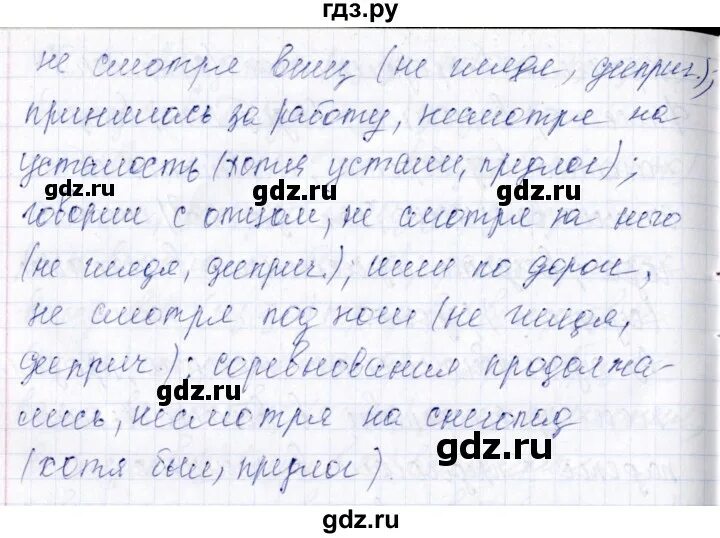 гдз.ру
не смотря вниз (не глядя, дееприч.);
принялись за работу, несмотря на
усталость (хотя устали, предлог);
gdz.ru gdz.ru
говорил с отцом, не смотря на него
(не глядя, дееприч.); шли по дороге,
не смотря под ноги (не глядя,
дееприч.); соревнования продолжа-
gdz.ru
лись, несмотря на снегопад
gdz.ru
(хотя был, предлог).
gdz.ru